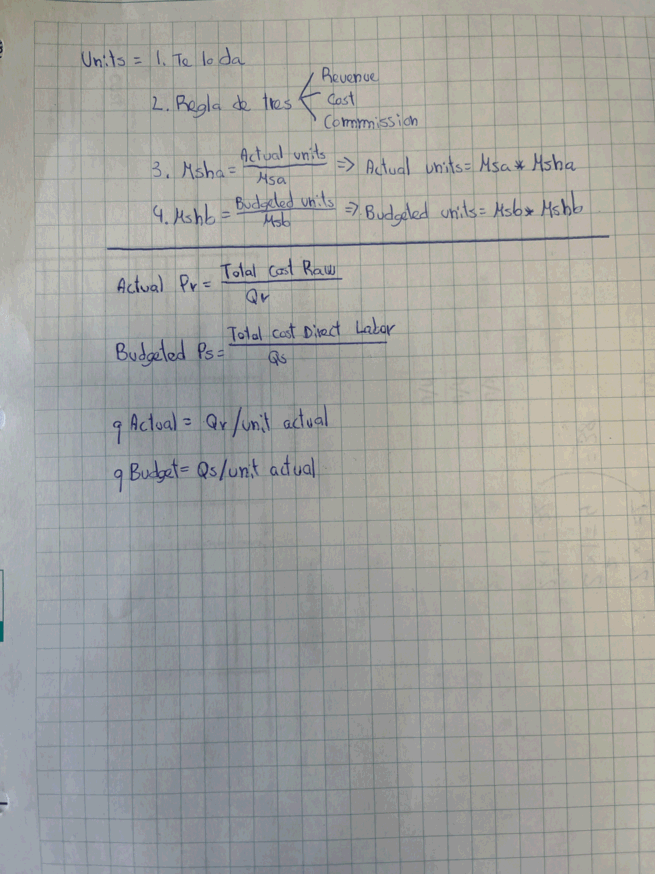 Units = 1. Te lo da
2. Regla de tres
Revenue
Cost
Commmission
3. Msha = Actual units / Msa => Actual units = Msa * Msha
4. Mshb = Budgeted units / Msb => Budgeted units = Msb * Mshb
Actual Pr = Total Cost Raw / Qr
Budgeted Ps = Total cost Direct Labor / Qs
q Actual = Qr/unit actual
q Budget = Qs/unit actual